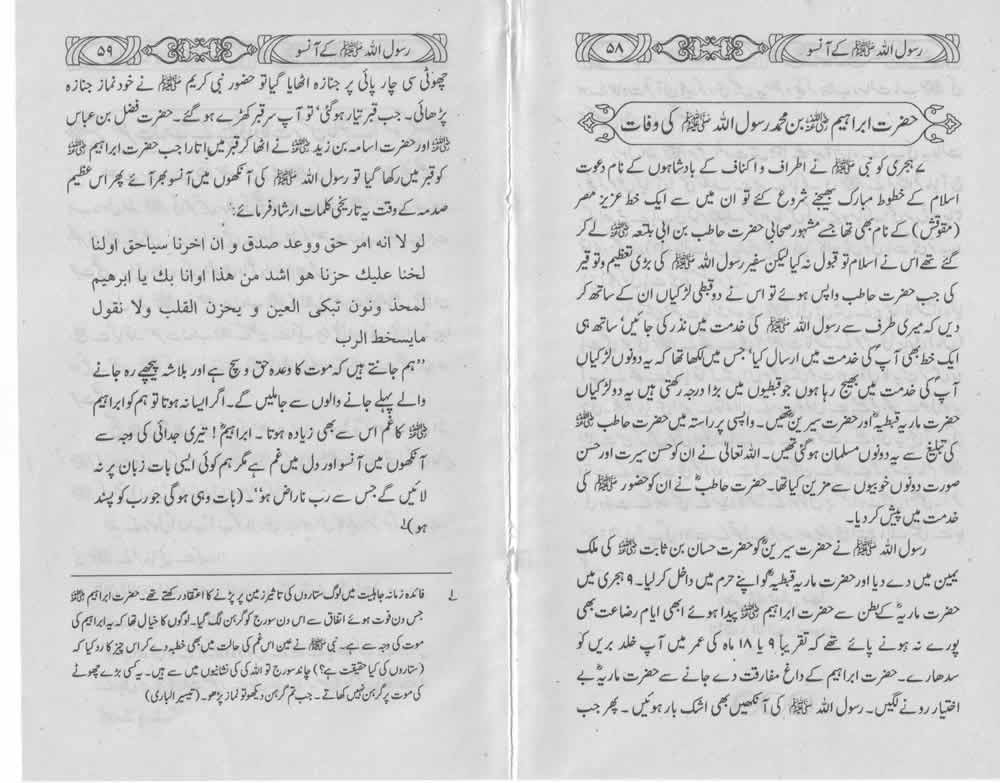 رسول اللہ ﷺ کے آنسو
۵۸
حضرت ابراہیم رضی اللہ عنہ بن محمد رسول اللہ ﷺ کی وفات
۷ ہجری کو نبی ﷺ نے اطراف و اکناف کے بادشاہوں کے نام دعوت
اسلام کے خطوط مبارک بھیجنے شروع کئے تو ان میں سے ایک خط عزیز مصر
(مقوقش) کے نام بھی تھا جسے مشہور صحابی حضرت حاطب بن ابی بلتعہ رضی اللہ عنہ لے کر
گئے تھے اس نے اسلام تو قبول نہ کیا لیکن سفیر رسول اللہ ﷺ کی بڑی تعظیم و توقیر
کی جب حضرت حاطب واپس ہوئے تو اس نے دو قبطی لڑکیاں ان کے ساتھ کر
دیں کہ میری طرف سے رسول اللہ ﷺ کی خدمت میں نذر کی جائیں‘ ساتھ ہی
ایک خط بھی آپؐ کی خدمت میں ارسال کیا‘ جس میں لکھا تھا کہ یہ دونوں لڑکیاں
آپؐ کی خدمت میں بھیج رہا ہوں جو قبطیوں میں بڑا درجہ رکھتی ہیں یہ دو لڑکیاں
حضرت ماریہ قبطیہؓ اور حضرت سیرینؓ تھیں۔ واپسی پر راستہ میں حضرت حاطب رضی اللہ عنہ
کی تبلیغ سے یہ دونوں مسلمان ہو گئی تھیں۔ اللہ تعالیٰ نے ان کو حسن سیرت اور حسن
صورت دونوں خوبیوں سے مزین کیا تھا۔ حضرت حاطبؓ نے ان کو حضور ﷺ کی
خدمت میں پیش کر دیا۔
رسول اللہ ﷺ نے حضرت سیرینؓ کو حضرت حسان بن ثابت رضی اللہ عنہ کی ملک
یمین میں دے دیا اور حضرت ماریہ قبطیہؓ کو اپنے حرم میں داخل کر لیا۔ ۹ ہجری میں
حضرت ماریہؓ کے بطن سے حضرت ابراہیم رضی اللہ عنہ پیدا ہوئے ابھی ایام رضاعت بھی
پورے نہ ہونے پائے تھے کہ تقریباً ۹ یا ۱۸ ماہ کی عمر میں آپ خلد بریں کو
سدھارے۔ حضرت ابراہیم کے داغ مفارقت دے جانے سے حضرت ماریہؓ بے
اختیار رونے لگیں۔ رسول اللہ ﷺ کی آنکھیں بھی اشک بار ہوئیں۔ پھر جب
رسول اللہ ﷺ کے آنسو
۵۹
چھوٹی سی چار پائی پر جنازہ اٹھایا گیا تو حضور نبی کریم ﷺ نے خود نماز جنازہ
پڑھائی۔ جب قبر تیار ہو گئی‘ تو آپ سر قبر کھڑے ہو گئے۔ حضرت فضل بن عباس
رضی اللہ عنہ اور حضرت اسامہ بن زید رضی اللہ عنہ نے اٹھا کر قبر میں اتارا جب حضرت ابراہیم رضی اللہ عنہ
کو قبر میں رکھا گیا تو رسول اللہ ﷺ کی آنکھوں میں آنسو بھر آئے پھر اس عظیم
صدمہ کے وقت یہ تاریخی کلمات ارشاد فرمائے:
لو لا انه امر حق ووعد صدق و ان اخرنا سياحق اولنا
لخنا عليك حزنا هو اشد من هذا اوانا بك يا ابرهيم
لمحذ ونون تبكى العين و يحزن القلب ولا نقول
مايسخط الرب
”ہم جانتے ہیں کہ موت کا وعدہ حق و سچ ہے اور بلا شبہ پیچھے رہ جانے
والے پہلے جانے والوں سے جا ملیں گے۔ اگر ایسا نہ ہوتا تو ہم کو ابراہیم
رضی اللہ عنہ کا غم اس سے بھی زیادہ ہوتا۔ ابراہیمؓ! تیری جدائی کی وجہ سے
آنکھوں میں آنسو اور دل میں غم ہے مگر ہم کوئی ایسی بات زبان پر نہ
لائیں گے جس سے رب ناراض ہو“۔ (بات وہی ہو گی جو رب کو پسند
ہو)۱
۱ فائدہ زمانہ جاہلیت میں لوگ ستاروں کی تاثیر زمین پر پڑنے کا اعتقاد رکھتے تھے۔ حضرت ابراہیم رضی اللہ عنہ
جس دن فوت ہوئے اتفاق سے اس دن سورج کو گرہن لگ گیا۔ لوگوں کا خیال تھا کہ یہ ابراہیم کی
موت کی وجہ سے ہے۔ نبی ﷺ نے عین اس غم کی حالت میں بھی خطبہ دے کر اس چیز کا رد کیا کہ
(ستاروں کی کیا حقیقت ہے؟) چاند سورج تو اللہ کی نشانیوں میں سے ہیں۔ یہ کسی بڑے چھوٹے
کی موت پر گرہن نہیں کھاتے۔ جب تم گرہن دیکھو تو نماز پڑھو۔ (تیسیر الباری)